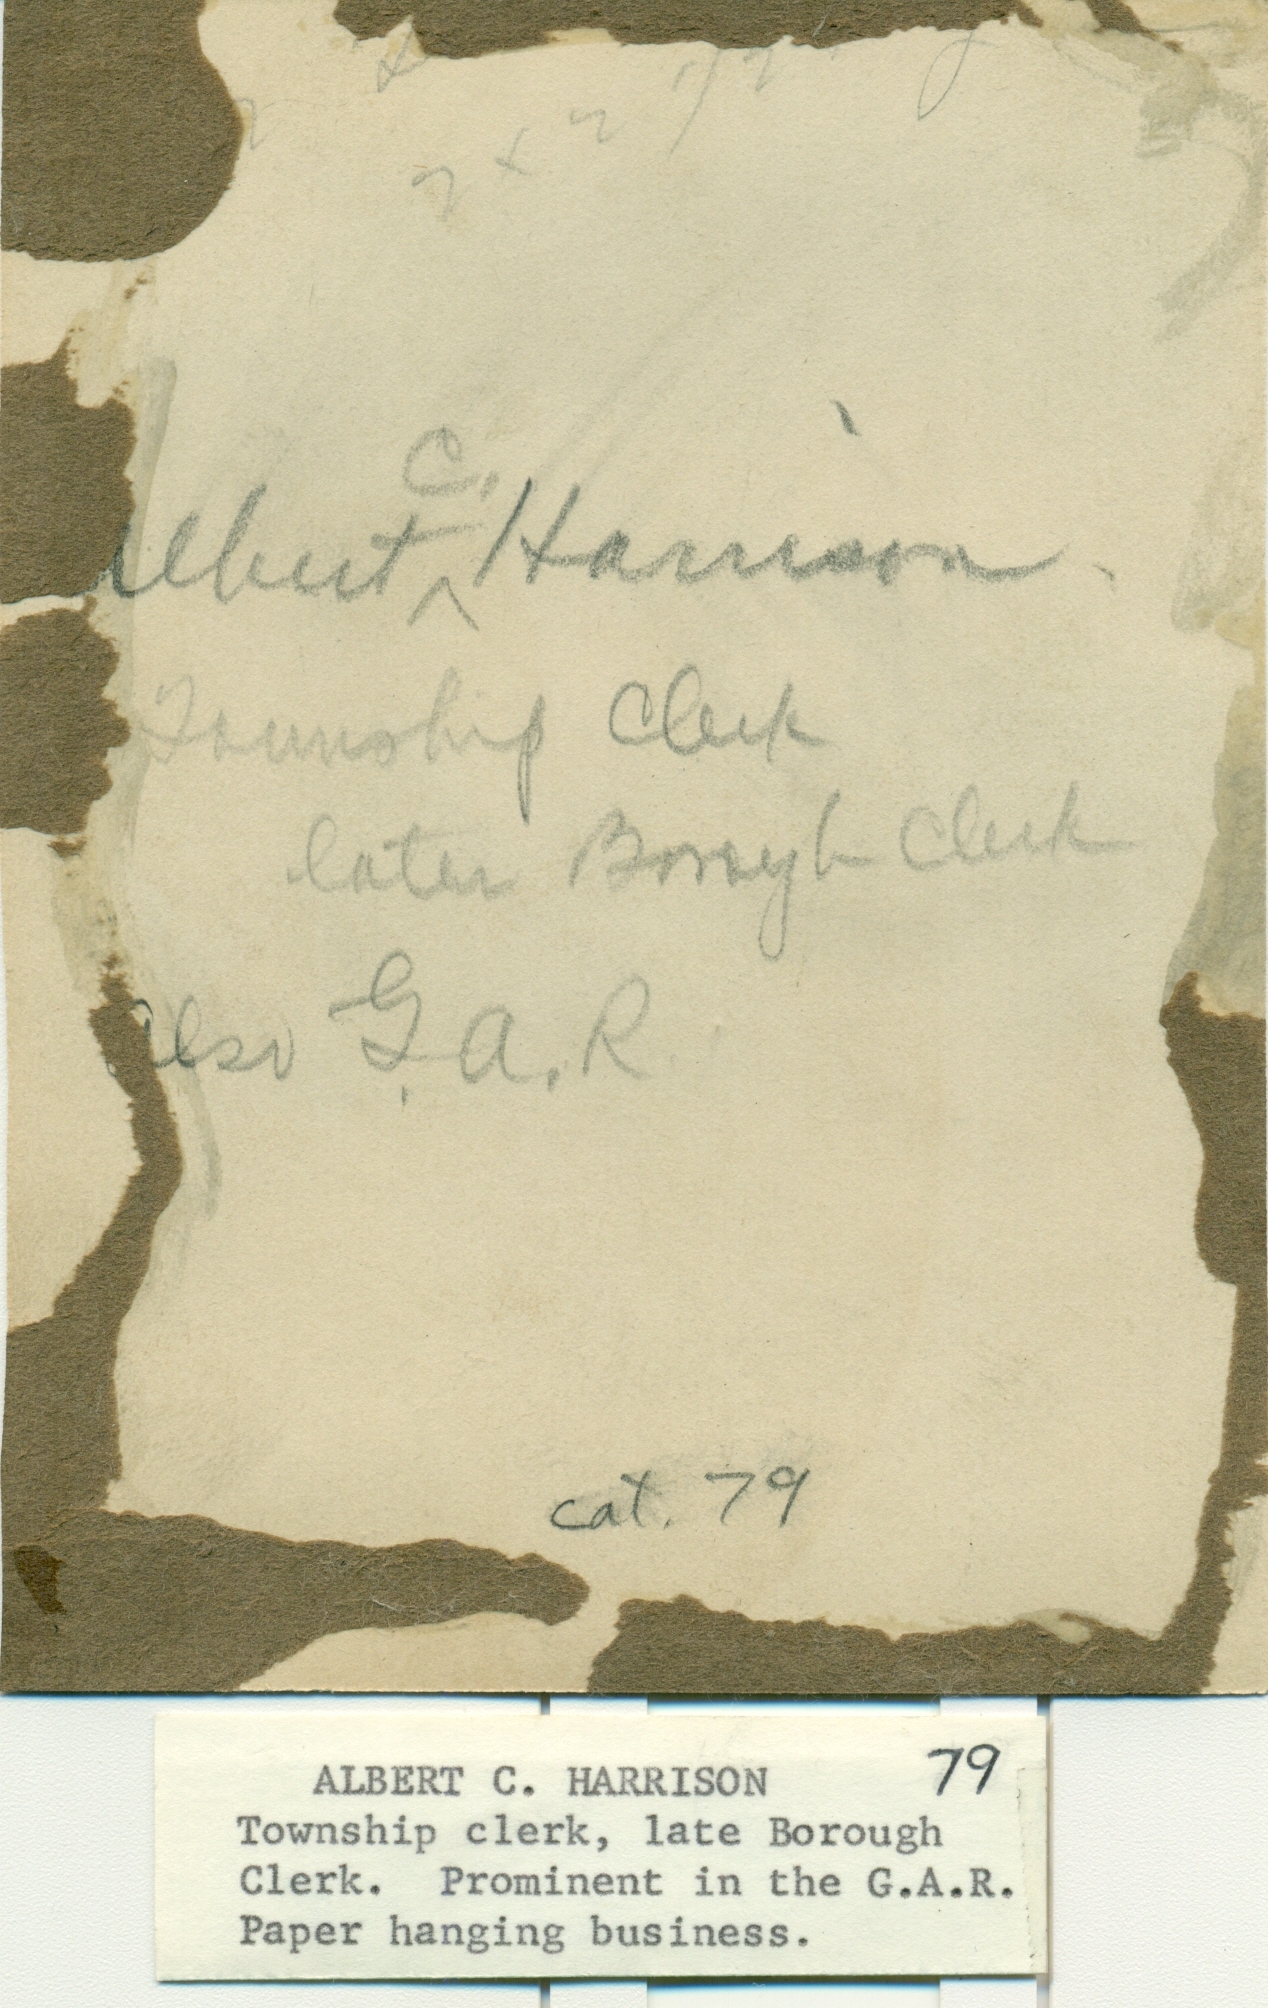 7 x 7
C.
Albert ^ Harrison.
Township Clerk
later Borough Clerk
also G.A.R
cat. 79
ALBERT C. HARRISON 79
Township clerk, late Borough
Clerk. Prominent in the G.A.R.
Paper hanging business.